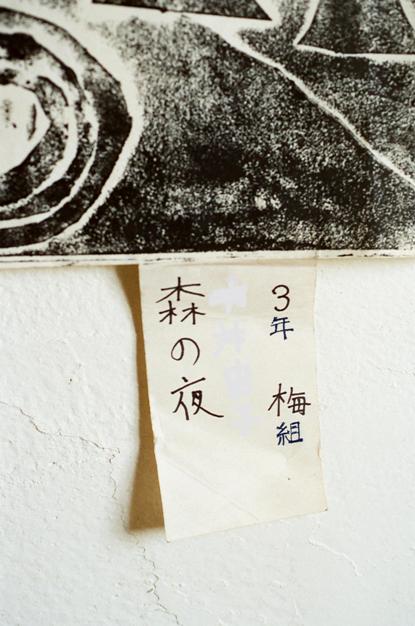 3年 梅組
森の夜